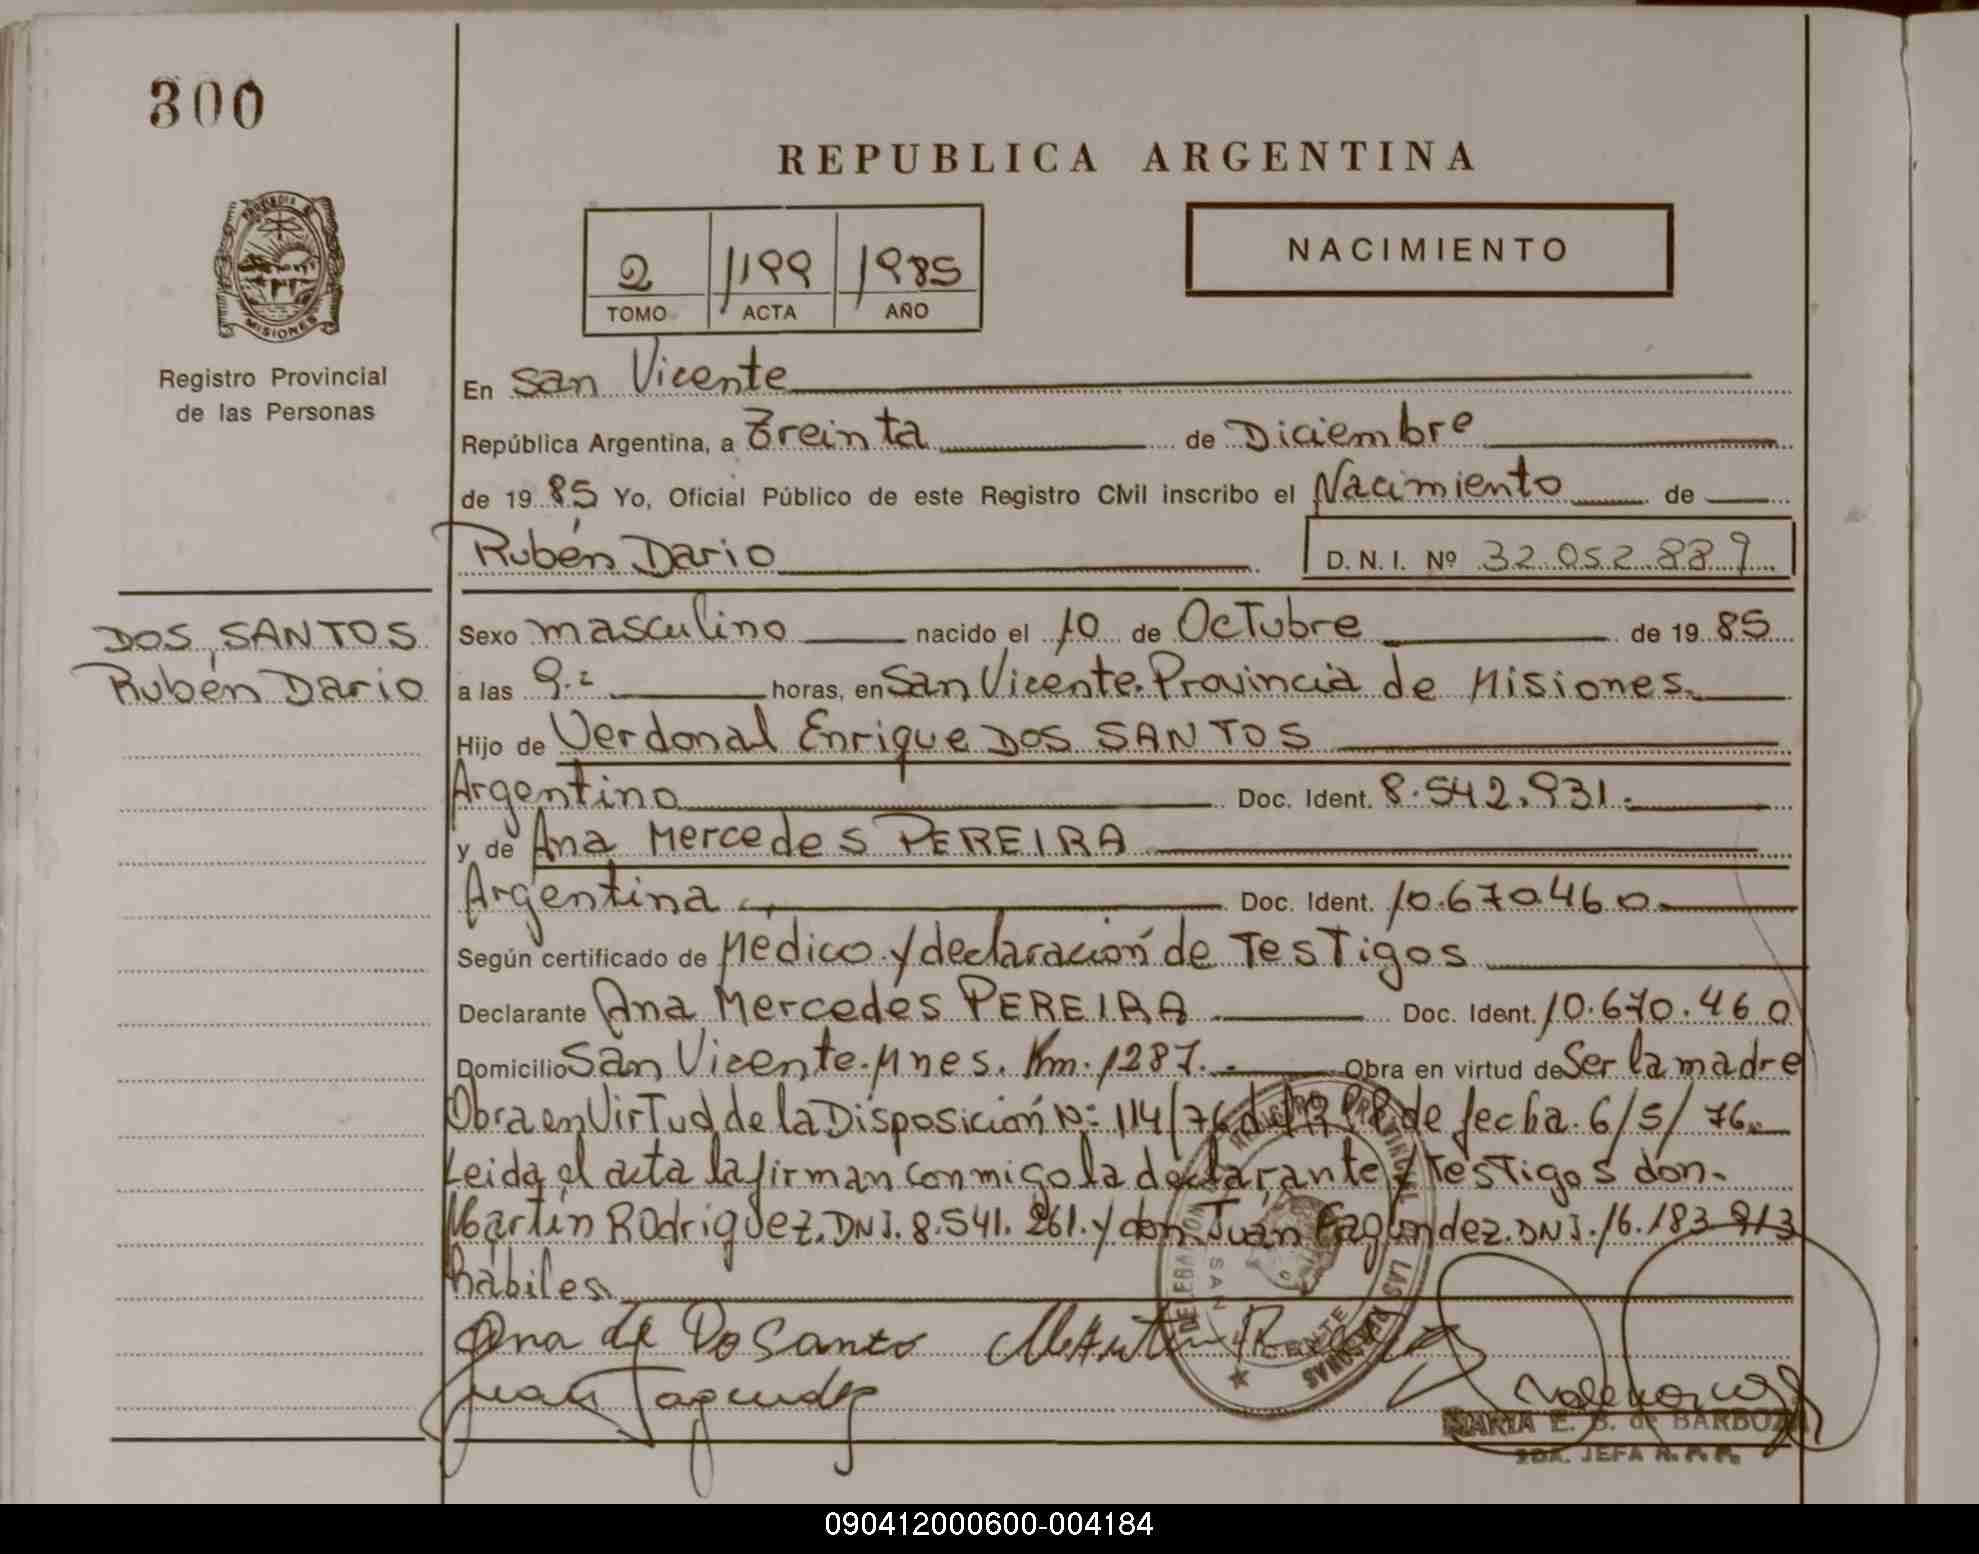 300
REPUBLICA ARGENTINA
NACIMIENTO
2 1199 1985
TOMO ACTA AÑO
MISIONES
Registro Provincial
de las Personas
En San Vicente
República Argentina, a Treinta de Diciembre
de 19 85 Yo, Oficial Público de este Registro Civil inscribo el Nacimiento de
Rubén Dario D. N. I. Nº 32.052.889
DOS SANTOS
Rubén Dario
Sexo masculino nacido el 10 de Octubre de 19 85
a las 9 horas, en San Vicente. Provincia de Misiones.
Hijo de Verdonal Enrique DOS SANTOS
Argentino Doc. Ident. 8.542.931.
y de Ana Mercedes PEREIRA
Argentina Doc. Ident. 10.670.460
Según certificado de Medico y declaración de Testigos
Declarante Ana Mercedes PEREIRA Doc. Ident. 10.670.460
Domicilio San Vicente. Mnes. Km. 1287. Obra en virtud de Ser la madre
Obra en Virtud de la Disposición Nº 114/76 de fecha 6/5/76
Leida el acta la firman conmigo la declarante y testigos don
Martín Rodriguez. DNI. 8.541.261. y don Juan Fagundez. DNI. 16.183.913
hábiles
Ana de Do Santo
Juan Fagundez
MARIA E. B. de BARBOZA
2DA. JEFA R. P. P.
090412000600-004184